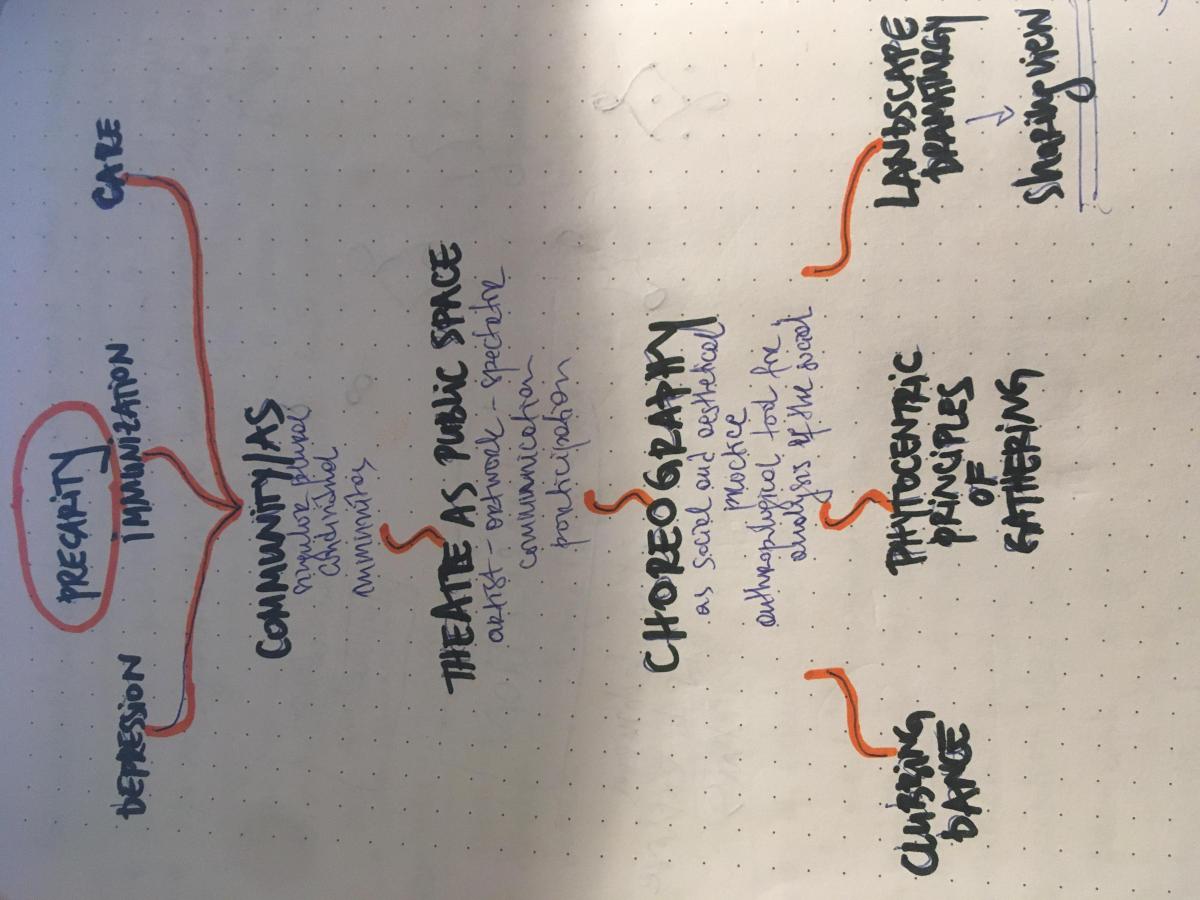 PRECARITY
DEPRESSION
iMMUNIZATION
CARE
COMMUNITY/AS
singular plural
conditional
immunitas
THEATRE AS PUBLIC SPACE
artist - artwork - spectator
communication
participation
CHOREOGRAPHY
as social and aesthetical
practice
anthropological tool for
analysis of the social
CLUBBING
DANCE
PHYTOCENTRIC
PRINCIPLES
OF
GATHERING
LANDSCAPE
DRAMATURGY
→ sharing view